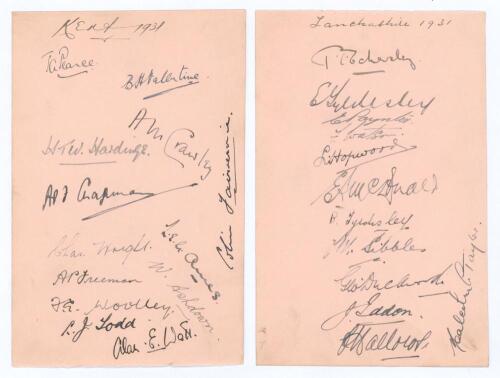 Kent 1931
T.C. Pearce
B.H. Valentine
A.M. Crawley
H.T.W. Hardinge.
A.P.F. Chapman
Colin Fairservice.
L.E.G. Ames
W. Ashdown
Chas. Wright.
A.P. Freeman
F.E. Woolley.
L.J. Todd
Alan. E. Watt.
Lancashire 1931
P.T. Eckersley
E Tyldesley
E Paynter
F Watson
L. Hopwood
E.A. McDonald
R. Tyldesley
F.M. Sibbles
Geo Duckworth
J. Iddon.
C Hallows
Malcolm L Taylor.